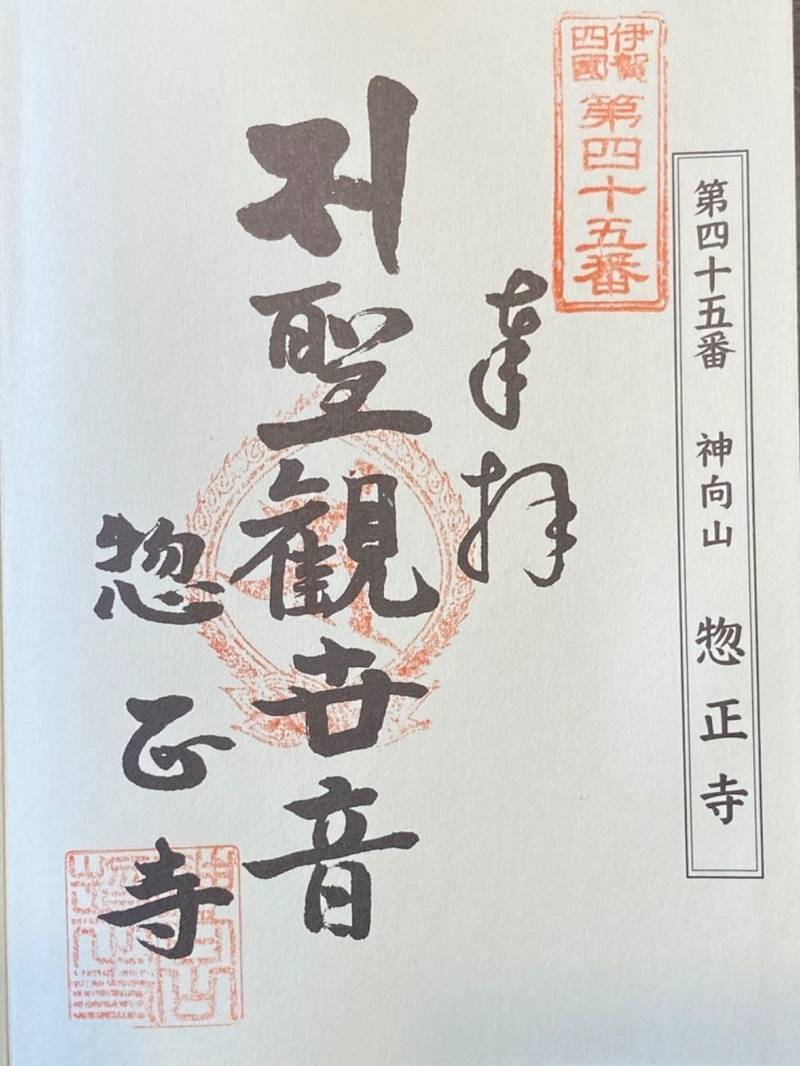 第四十五番 神向山 惣正寺
伊賀
四國
第四十五番
奉拝
聖観世音
惣正寺